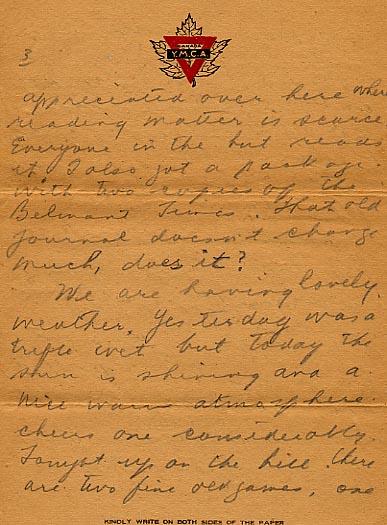 3
CANADA
Y.M.C.A
appreciated over here when
reading matter is scarce
Everyone in the hut reads
it. I also got a package
with two copies of the
Belmont Times. That old
journal doesn't change
much, does it?
We are having lovely
weather. Yesterday was a
trifle wet but today the
sun is shining and a
nice warm atmosphere
cheers one considerably.
Tonight up on the hill there
are two fine old games, one
KINDLY WRITE ON BOTH SIDES OF THE PAPER